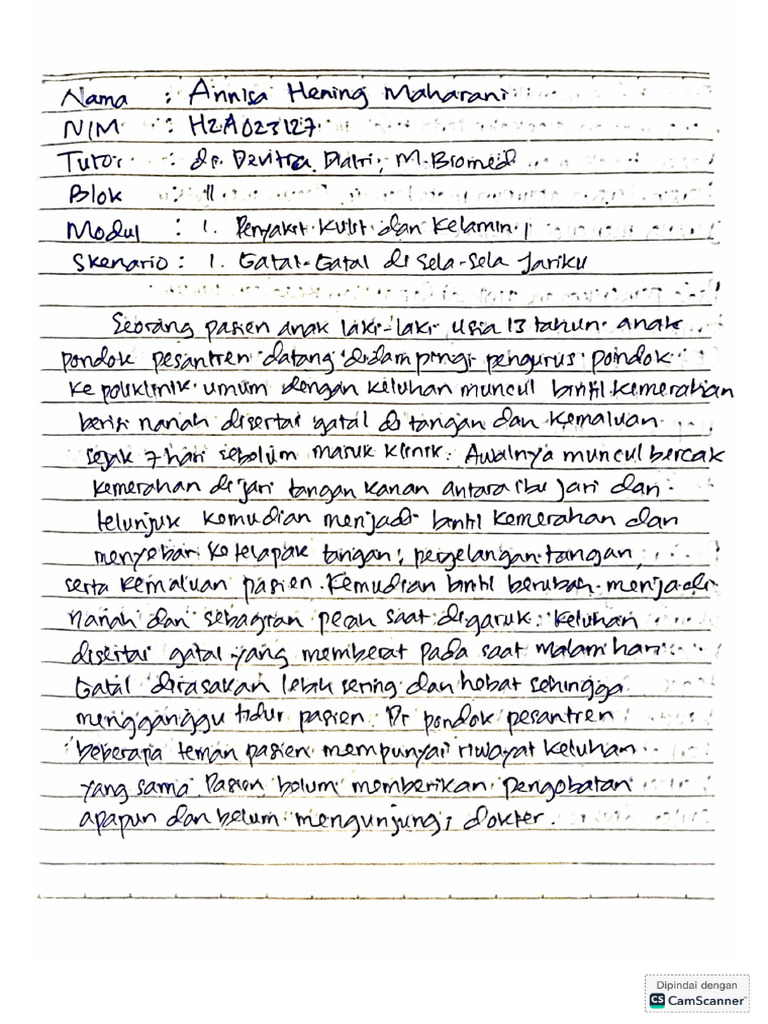 Nama : Annisa Hening Maharani
NIM : H2A023127
Tutor : dr. Devitra Dlatri, M. Biomed
Blok : 11
Modul : 1. Penyakit Kulit dan Kelamin 1
Skenario : 1. Gatal-Gatal di Sela-Sela Jariku
Seorang pasien anak laki-laki usia 13 tahun anak
pondok pesantren datang didampingi pengurus pondok
ke poliklinik umum dengan keluhan muncul bintil kemerahan
berisi nanah disertai gatal di tangan dan kemaluan
sejak 7 hari sebelum masuk klinik. Awalnya muncul bercak
kemerahan di jari tangan kanan antara ibu jari dan
telunjuk kemudian menjadi bintil kemerahan dan
menyebar ke telapak tangan, pergelangan tangan,
serta kemaluan pasien. Kemudian bintil berubah menjadi
nanah dan sebagian pecah saat digaruk. Keluhan
disertai gatal yang memberat pada saat malam hari.
Gatal dirasakan lebih sering dan hebat sehingga
mengganggu tidur pasien. Di pondok pesantren
beberapa teman pasien mempunyai riwayat keluhan
yang sama. Pasien belum memberikan pengobatan
apapun dan belum mengunjungi dokter.
Dipindai dengan
CS CamScanner